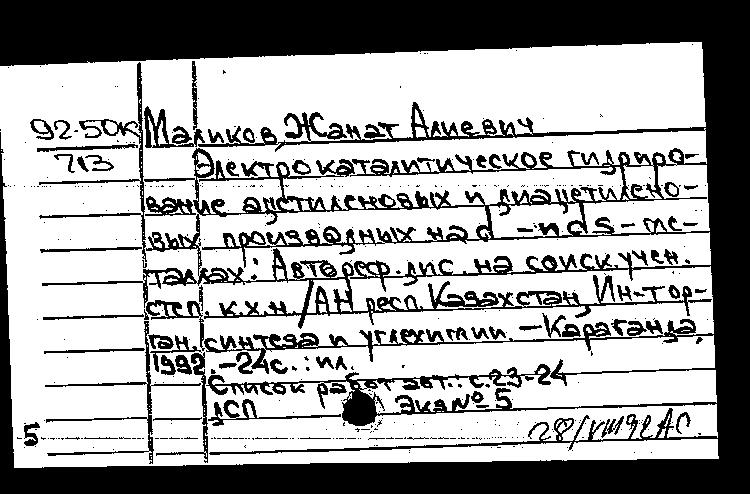 92-50К Маликов, Жанат Алиевич
713 Электрокаталитическое гидриро-
вание ацетиленовых и диацетилено-
вых производных на d - и ds - ме-
таллах: Автореф. дис. на соиск. учен.
степ. к.х.н. / АН респ. Казахстан, Ин-т ор-
ган. синтеза и углехимии. - Караганда,
1992. - 24с. : ил.
Список работ авт.: с.23-24
ДСП Экз № 5
5